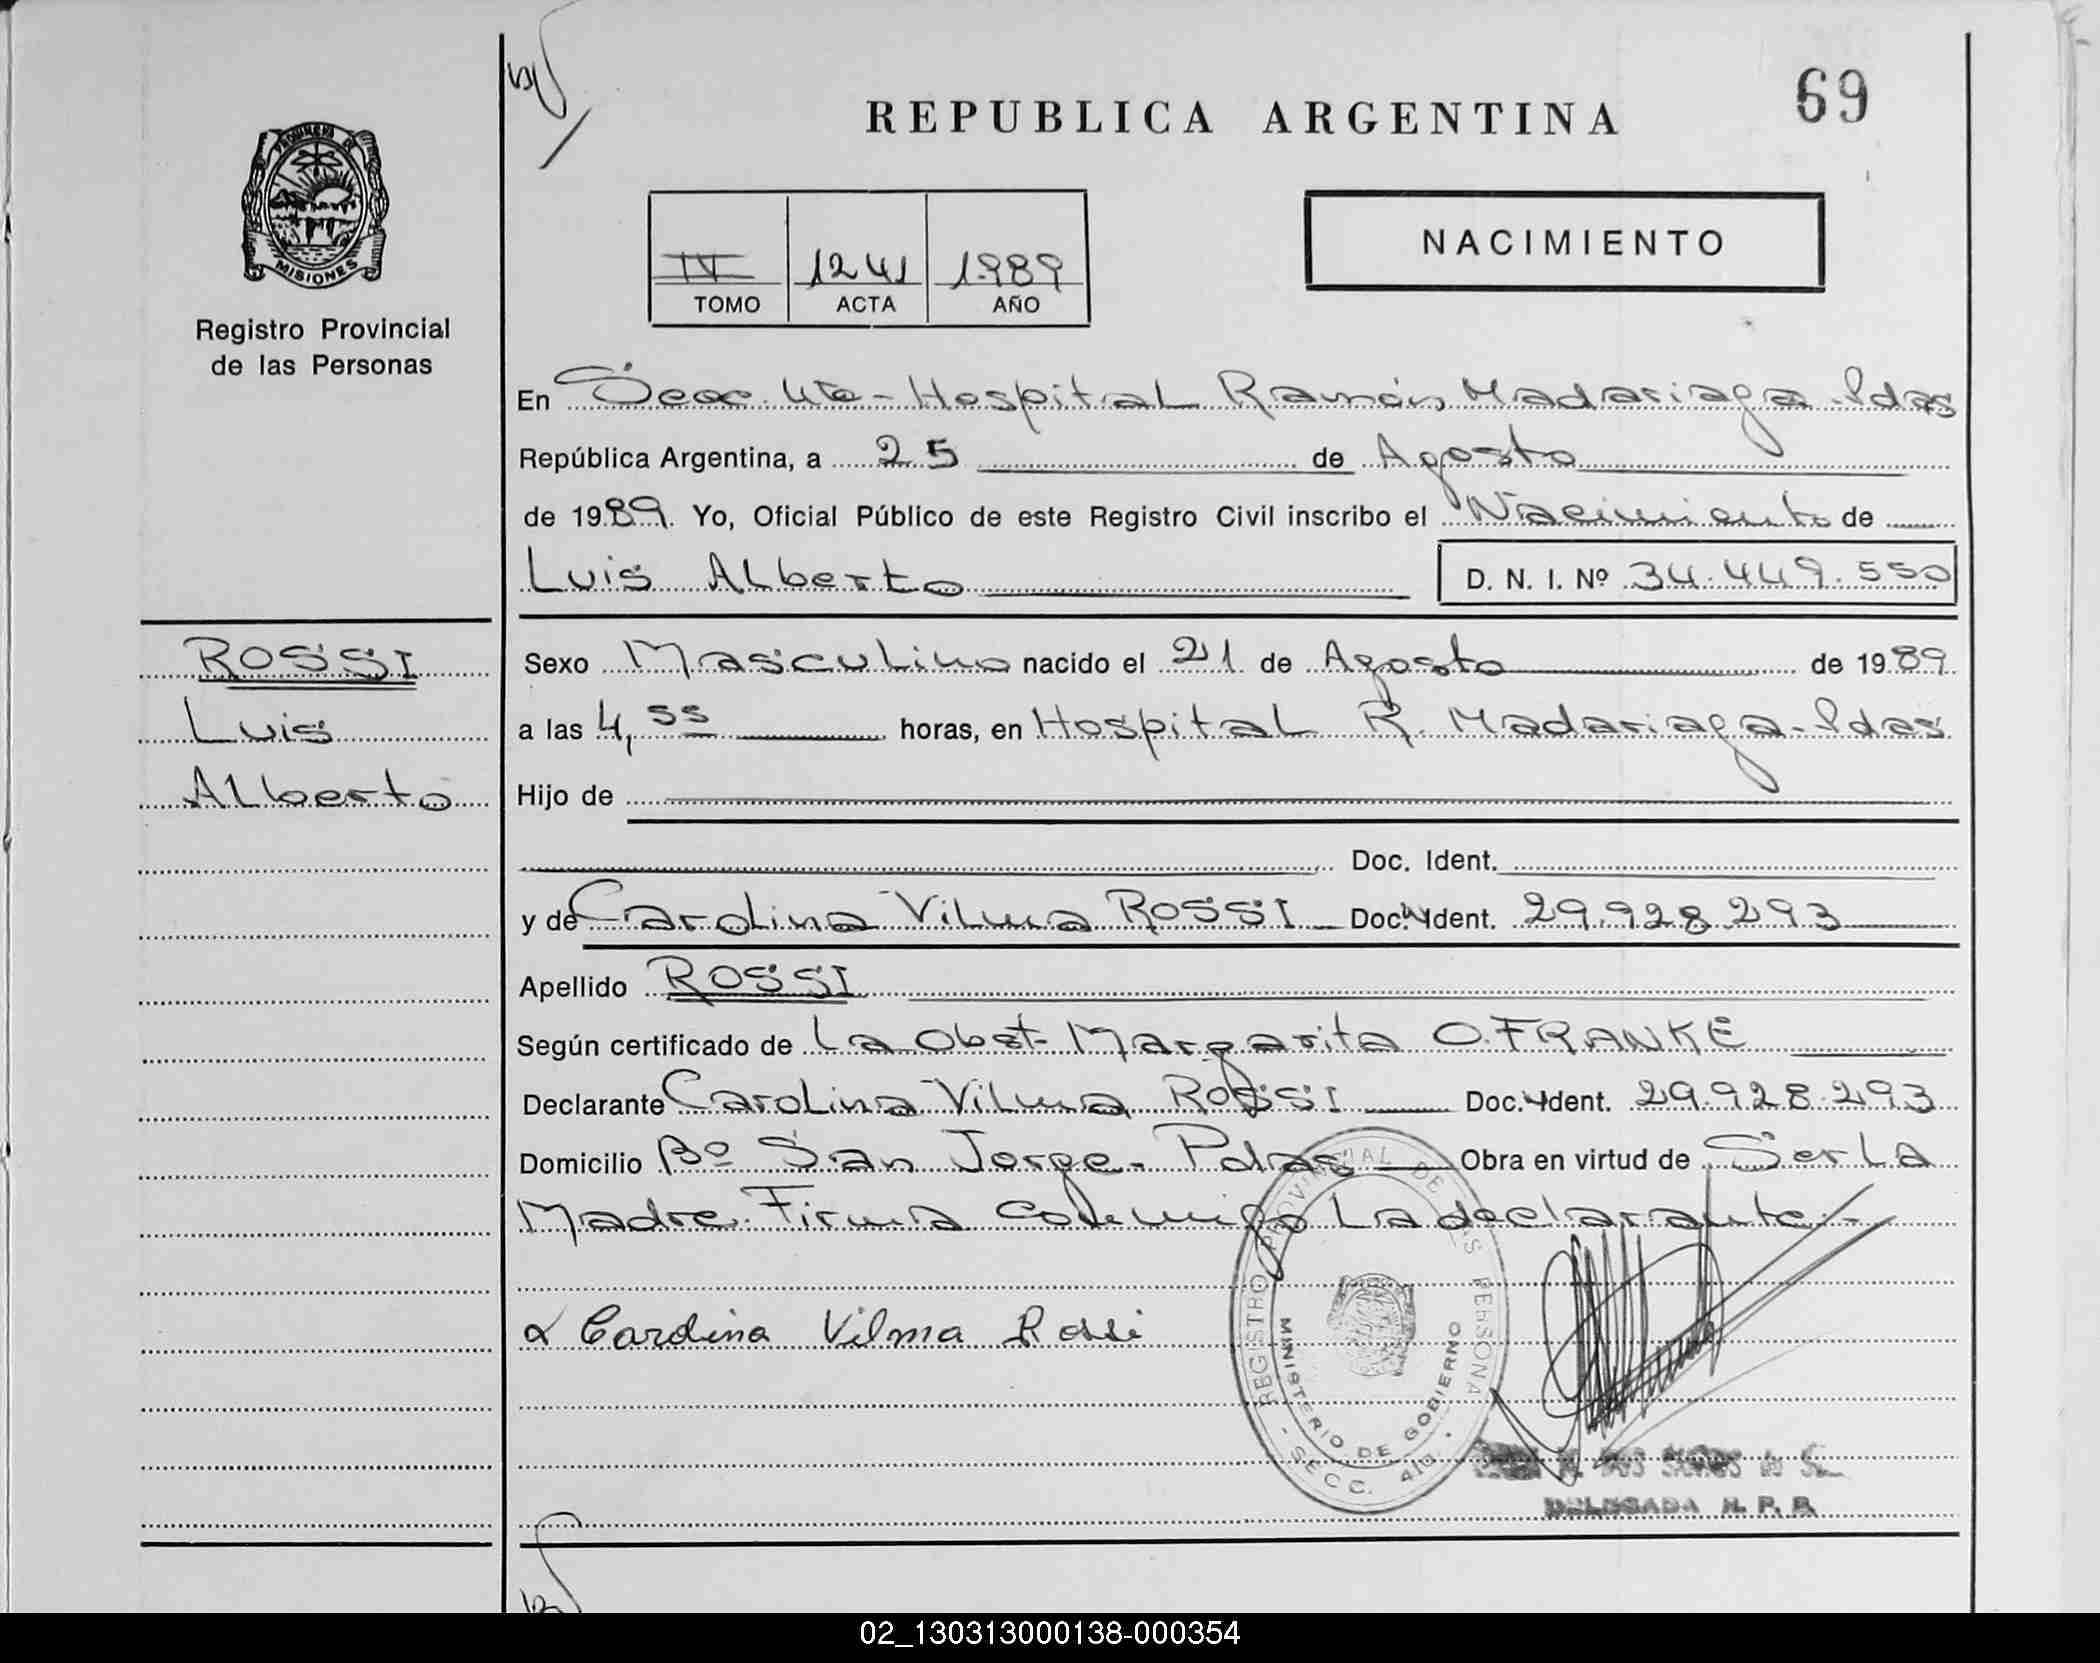 69
REPUBLICA ARGENTINA
PROVINCIA DE
MISIONES
Registro Provincial
de las Personas
IV 1241 1989
TOMO ACTA AÑO
NACIMIENTO
En Secc. 4ta - Hospital Ramón Madariaga - Pdas
República Argentina, a 25 de Agosto
de 1989. Yo, Oficial Público de este Registro Civil inscribo el Nacimiento de
Luis Alberto D. N. I. Nº 34.449.550
ROSSI
Luis
Alberto
Sexo Masculino nacido el 21 de Agosto de 1989
a las 4,55 horas, en Hospital R. Madariaga - Pdas
Hijo de
Doc. Ident.
y de Carolina Vilma ROSSI Doc. Ident. 29.928.293
Apellido ROSSI
Según certificado de La Obst. Margarita O. FRANKE
Declarante Carolina Vilma ROSSI Doc. Ident. 29.928.293
Domicilio Bº San Jorge - Pdas Obra en virtud de Ser La
Madre. Firma conmigo La declarante -
Carolina Vilma Rossi
REGISTRO PROVINCIAL DE LAS PERSONAS
MINISTERIO DE GOBIERNO
- SECC. 4ta. -
DOS SANTOS
DELEGADA R. P. P.
02_130313000138-000354